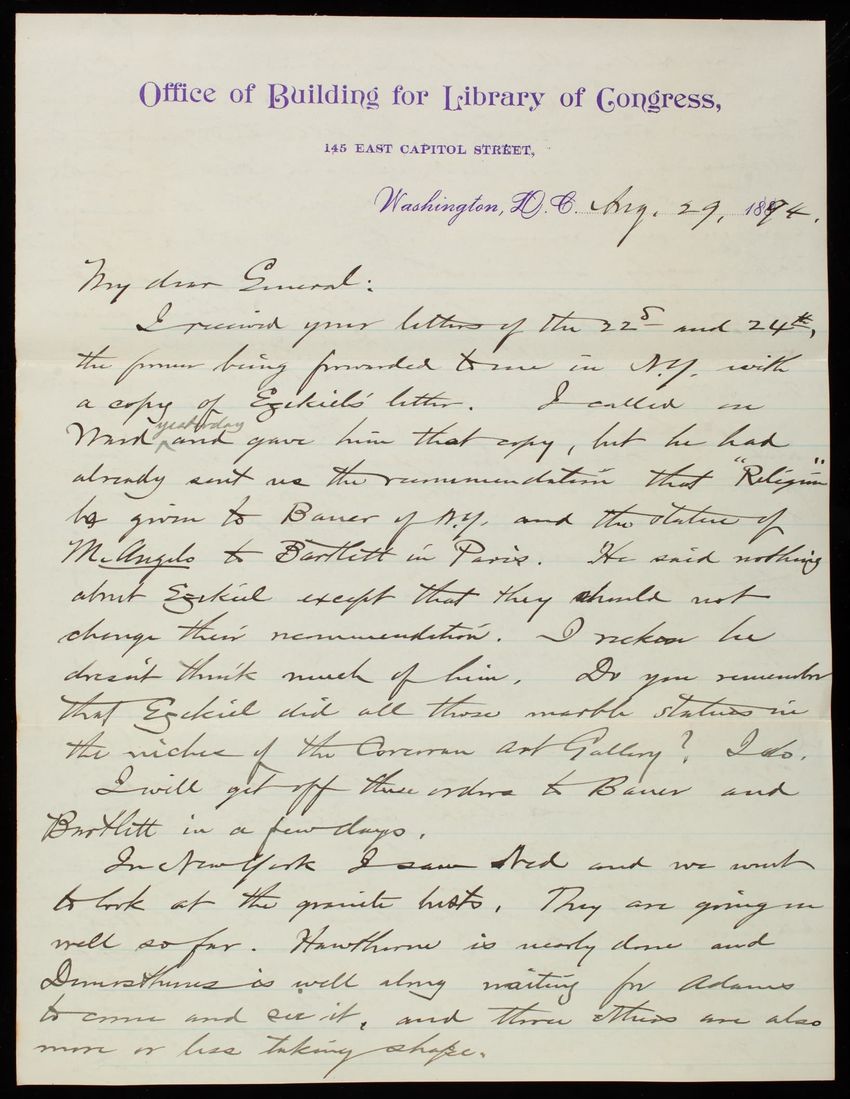 Office of Building for Library of Congress,
145 EAST CAPITOL STREET,
Washington, D. C. Aug. 29, 1894.
My dear General:
I received your letters of the 22d and 24th,
the former being forwarded to me in N.Y. with
a copy of Ezekiel's letter. I called on
Ward yesterday and gave him that copy, but he had
already sent us the recommendation that "Religion"
be given to Bauer of N.Y. and the statue of
M. Angelo to Bartlett in Paris. He said nothing
about Ezekiel except that they should not
change their recommendation. I reckon he
doesn't think much of him. Do you remember
that Ezekiel did all those marble statues in
the niches of the Corcoran Art Gallery? I do.
I will get off these orders to Bauer and
Bartlett in a few days.
In New York I saw Ned and we went
to look at the granite busts. They are going on
well so far. Hawthorne is nearly done and
Demosthenes is well along waiting for Adams
to come and see it, and three others are also
more or less taking shape.